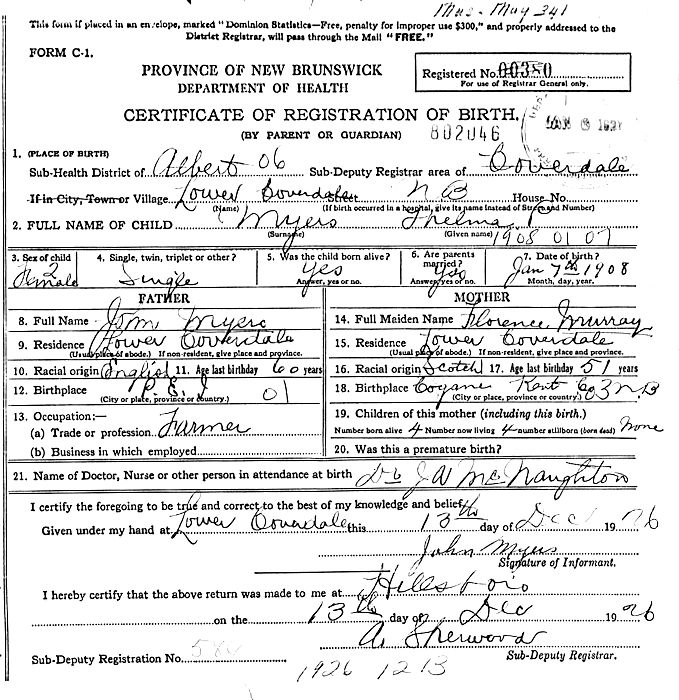 Mar - May 341
This form if placed in an envelope, marked "Dominion Statistics—Free, penalty for improper use $300," and properly addressed to the
District Registrar, will pass through the Mail "FREE."
FORM C-1.
PROVINCE OF NEW BRUNSWICK
DEPARTMENT OF HEALTH
Registered No. 00380
For use of Registrar General only.
CERTIFICATE OF REGISTRATION OF BIRTH.
(BY PARENT OR GUARDIAN) 802046
1. (PLACE OF BIRTH)
Sub-Health District of Albert 06 Sub-Deputy Registrar area of Coverdale
If in City, Town or Village Lower Coverdale Street N B House No.
(Name) (If birth occurred in a hospital, give its name instead of Street and Number)
2. FULL NAME OF CHILD Myers Thelma P
(Surname) (Given name) 1908 01 07
3. Sex of child 4. Single, twin, triplet or other? 5. Was the child born alive? 6. Are parents married? 7. Date of birth?
2 Female Single Yes Yes Jan 7th 1908
Answer, yes or no. Answer, yes or no. Month, day, year.
FATHER MOTHER
8. Full Name John Myers 14. Full Maiden Name Florence Murray
9. Residence Lower Coverdale 15. Residence Lower Coverdale
(Usual place of abode.) If non-resident, give place and province. (Usual place of abode.) If non-resident, give place and province.
10. Racial origin English 11. Age last birthday 60 years 16. Racial origin Scotch 17. Age last birthday 51 years
12. Birthplace P. E. I 01 18. Birthplace Cogane Kent Co 3 N.B
(City or place, province or country.) (City or place, province or country.)
13. Occupation:— 19. Children of this mother (including this birth.)
(a) Trade or profession Farmer Number born alive 4 Number now living 4 number stillborn (born dead) None
(b) Business in which employed 20. Was this a premature birth?
21. Name of Doctor, Nurse or other person in attendance at birth Dr J A McNaughton
I certify the foregoing to be true and correct to the best of my knowledge and belief.
Given under my hand at Lower Coverdale this 13th day of Dec 1926
John Myers
Signature of Informant.
I hereby certify that the above return was made to me at Hillsboro
on the 13th day of Dec 1926
A. Sherwood
Sub-Deputy Registration No. Sub-Deputy Registrar.
1926 12 13